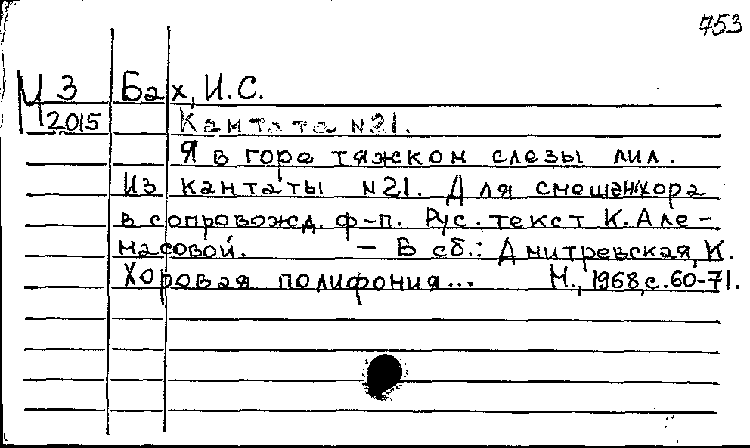 753
М 3 Бах, И.С.
2015 Кантата N21.
Я в горе тяжком слезы лил.
Из кантаты N21. Для смешан. хора
в сопровожд. ф-п. Рус. текст К. Але-
масовой. - В сб.: Дмитревская, К.
Хоровая полифония... М., 1968, с. 60-71.